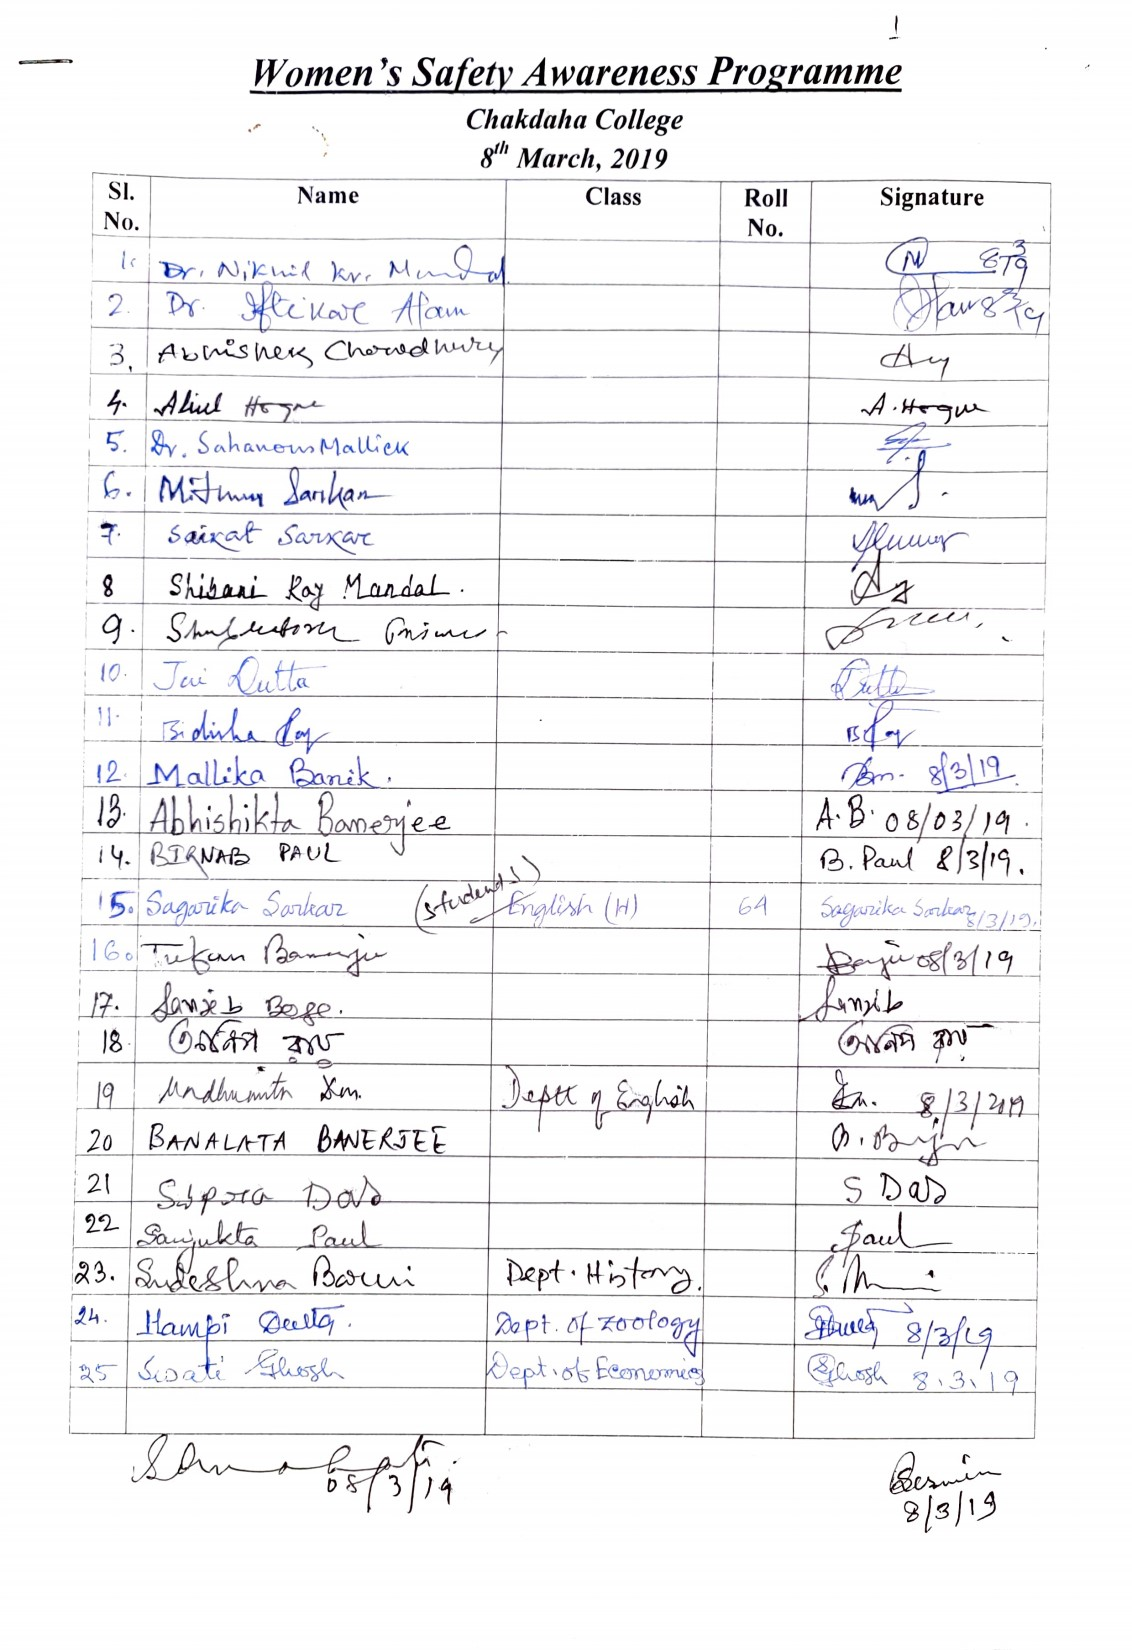 1
Women's Safety Awareness Programme
Chakdaha College
8th March, 2019
Sl. No. Name Class Roll No. Signature
1. Dr. Nikhil kr. Mandal 8/3/19
2. Dr. Iftikar Alam 8/3/19
3. Abhishek Chowdhury
4. Aliul Hoque A. Hoque
5. Dr. Sahanous Mallick
6. Mithun Sarkar
7. Saikat Sarkar
8 Shibani Ray Mandal.
9.
10. Jui Dutta Dutta
11. Bidisha Roy B Roy
12. Mallika Banik. 8/3/19
13. Abhishikta Banerjee A.B. 08/03/19.
14. BIRNAB PAUL B. Paul 8/3/19.
15. Sagarika Sarkar (students) English (H) 64 Sagarika Sarkar 8/3/19.
16. Banerjee 08/3/19
17. Sanjib Bose. Sanjib
18.
19 Madhumita Deptt of English 8/3/2019
20 BANALATA BANERJEE
21 Das S Das
22 Sanjukta Paul Paul
23. Sudeshna Barui Dept. History.
24. Hampi Dutta. Dept. of Zoology 8/3/19
25 Swati Ghosh Dept. of Economics Ghosh 8.3.19
08/3/19
8/3/19